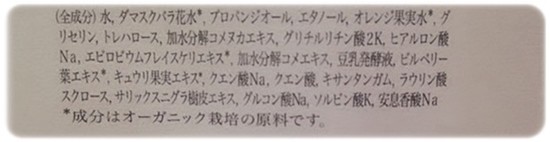 (全成分)水, ダマスクバラ花水*, プロパンジオール, エタノール, オレンジ果実水*, グ
リセリン, トレハロース, 加水分解コメヌカエキス, グリチルリチン酸2K, ヒアルロン酸
Na, エピロビウムフレイスケリエキス*, 加水分解コメエキス, 豆乳発酵液, ビルベリー
葉エキス*, キュウリ果実エキス*, クエン酸Na, クエン酸, キサンタンガム, ラウリン酸
スクロース, サリックスニグラ樹皮エキス, グルコン酸Na, ソルビン酸K, 安息香酸Na
*成分はオーガニック栽培の原料です。